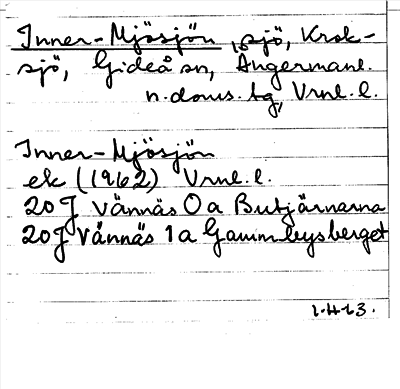 Inner-Mjösjön, sjö, Krok-
sjö, Gideå sn, Ångermanl.
n. doms. tg, Vrnl. l.
Inner-Mjösjön
ek (1962) Vrnl. l.
20J Vännäs 0a Butjärnarna
20J Vännäs 1a Gammleysberget
1.413.